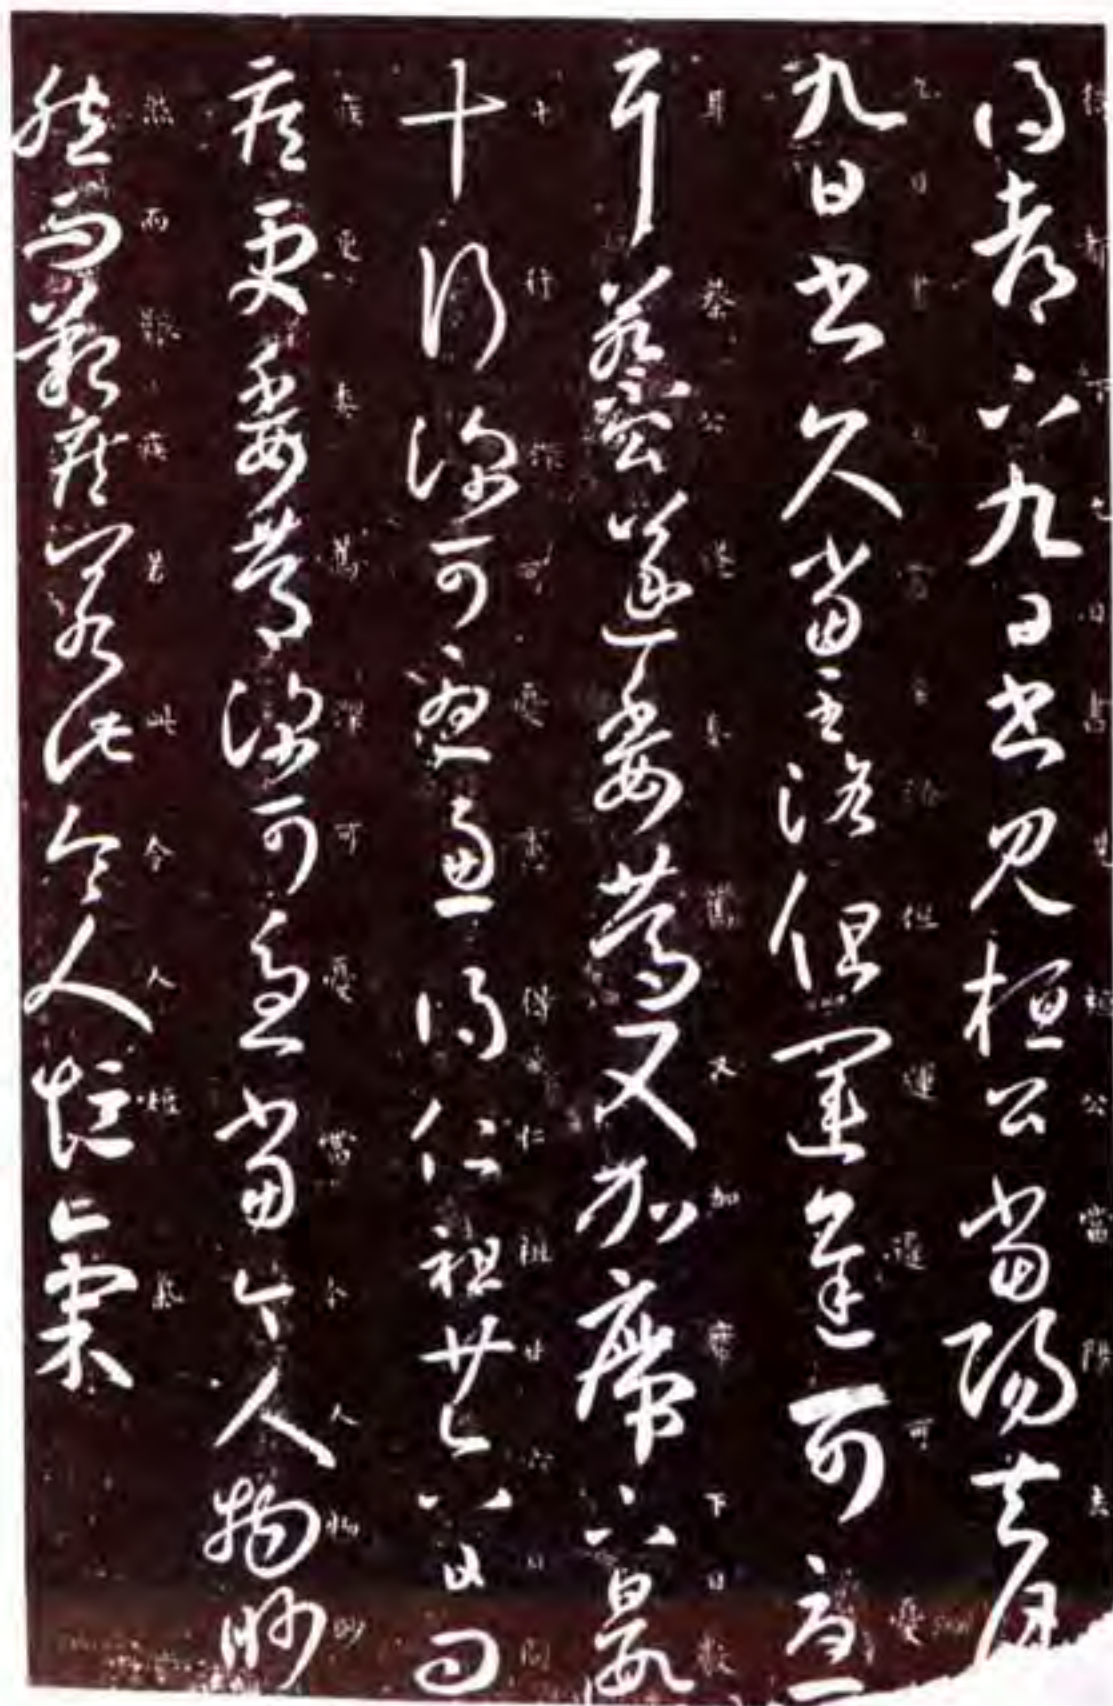 得都下九日書見桓公當陽去月
九日書久當至洛但運遲可憂
耳蔡公遂委篤又加廗下日數
十行深可憂慮得仁祖廿六日問
疾更委篤深可憂當今人物眇
然而艱疾若此令人短氣